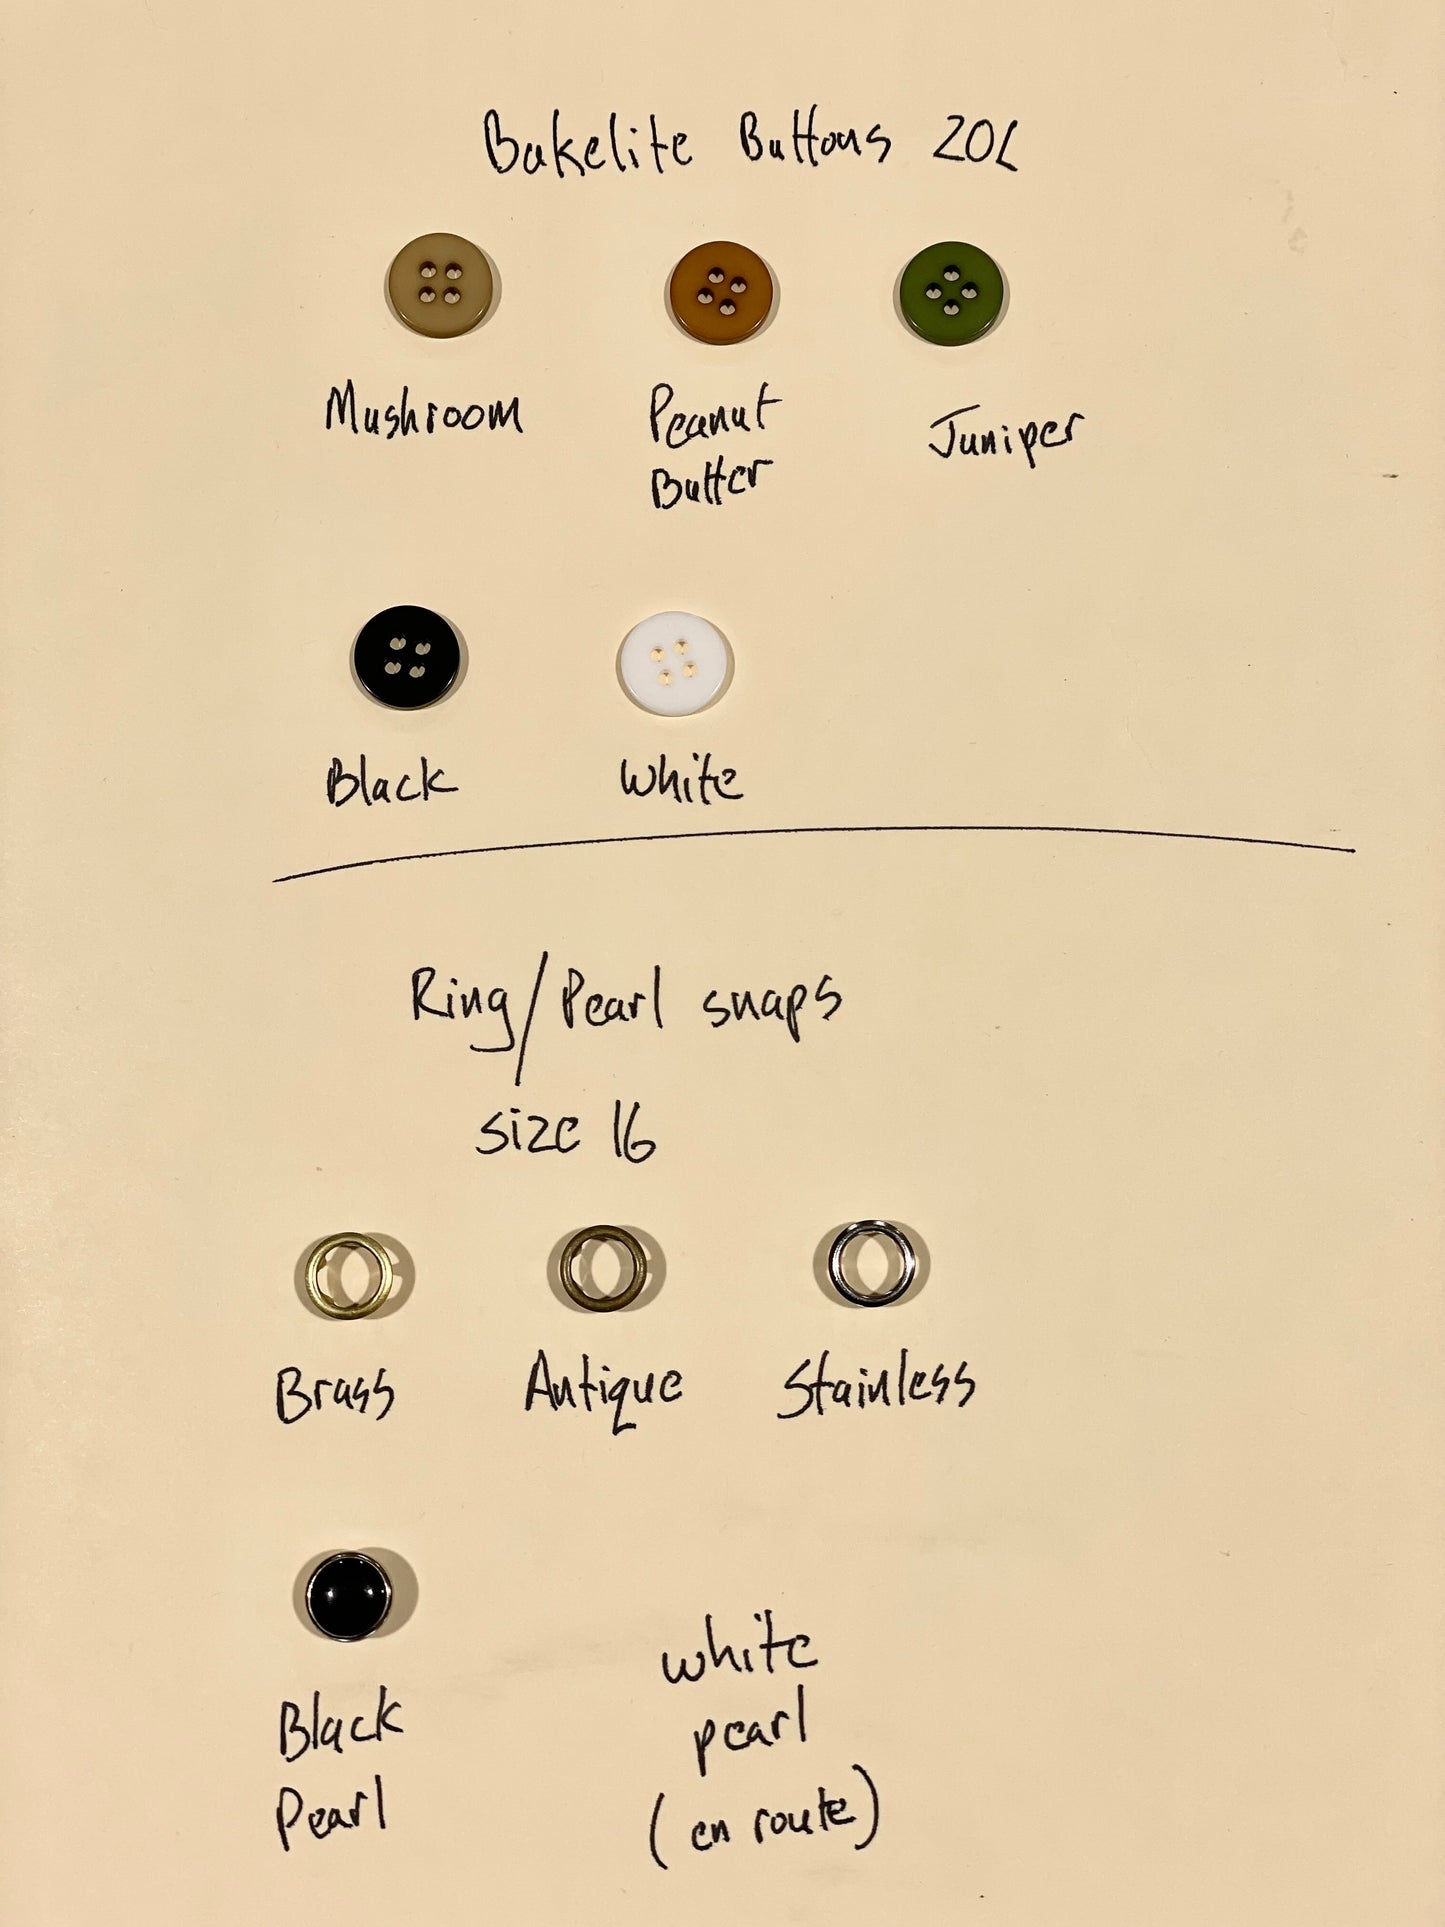 Bakelite Buttons 20L
Mushroom
Peanut
Butter
Juniper
Black
White
Ring/Pearl snaps
size 16
Brass
Antique
Stainless
Black
Pearl
white
pearl
(en route)